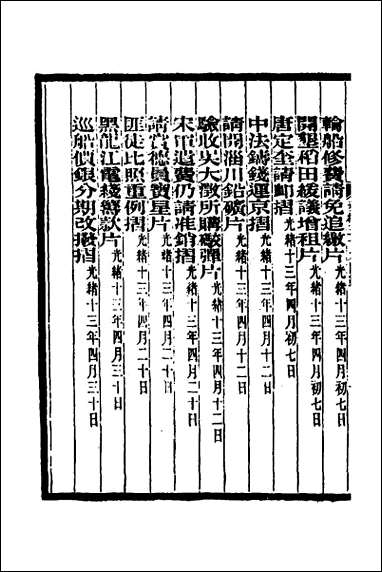 輪船修費請免追繳片光緒十三年四月初七日
開墾稻田緩議增租片光緒十三年四月初七日
唐定奎請卹摺光緒十三年四月初七日
中法鑄錢運京摺光緒十三年四月十二日
請開淄川鉛礦片光緒十三年四月十二日
驗收吳大澂所購礮彈片光緒十三年四月十二日
宋軍遺費仍請准銷摺光緒十三年四月二十日
請賞德員寶星片光緒十三年四月二十日
匪徒比照重例摺光緒十三年四月二十日
黑龍江電綫籌款片光緒十三年四月三十日
巡船價銀分期改撥摺光緒十三年四月三十日